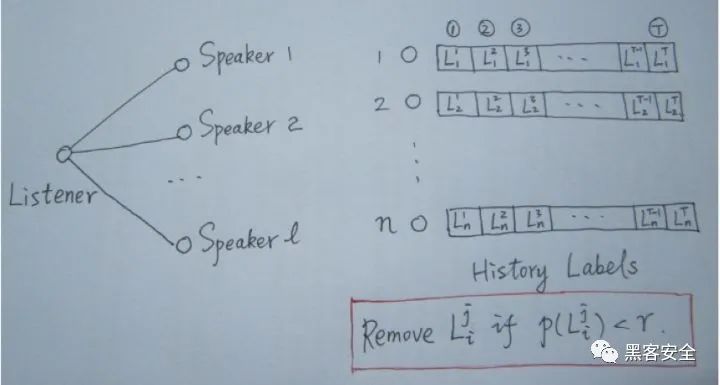 Listener
Speaker 1
Speaker 2
...
Speaker l
① ② ③ Ⓣ
1 L₁¹ L₁² L₁³ ... L₁ᵀ⁻¹ L₁ᵀ
2 L₂¹ L₂² L₂³ ... L₂ᵀ⁻¹ L₂ᵀ
n Lₙ¹ Lₙ² Lₙ³ ... Lₙᵀ⁻¹ Lₙᵀ
History Labels
Remove Lᵢʲ if p(Lᵢʲ) < r.
黑客安全